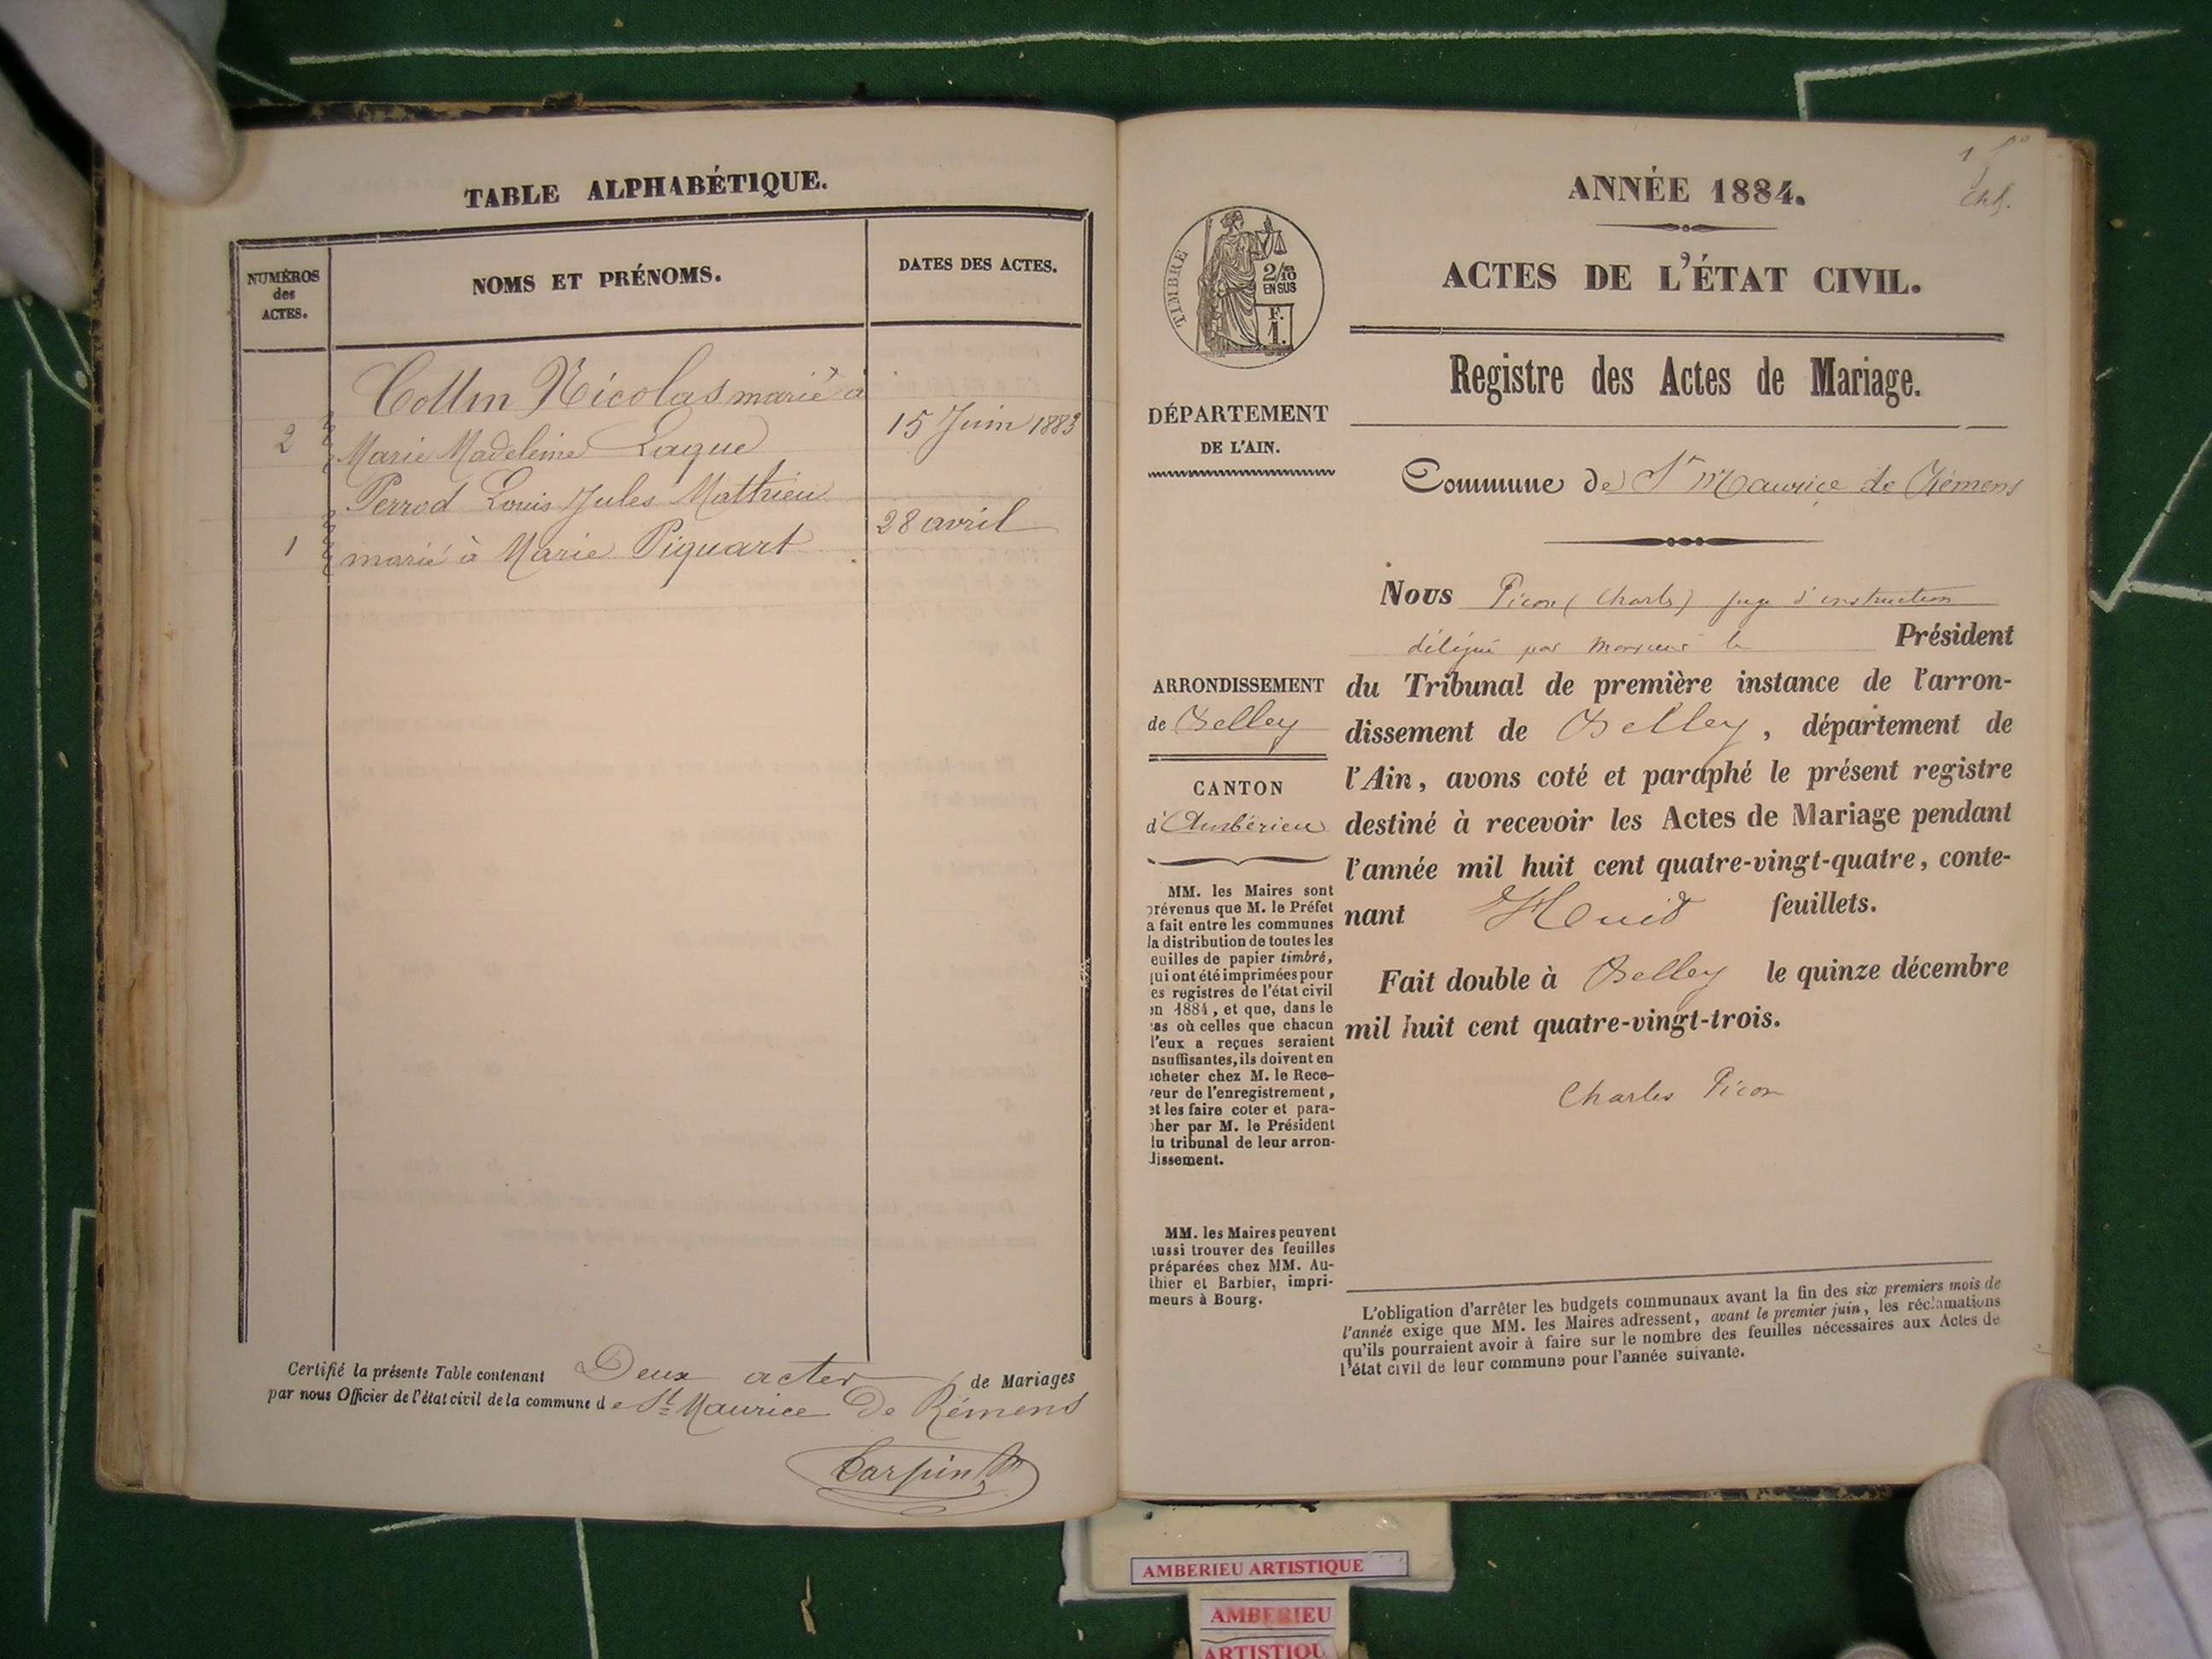 TABLE ALPHABÉTIQUE.
NUMÉROS
des
ACTES.
NOMS ET PRÉNOMS.
DATES DES ACTES.
Nicolas marié à
2 Marie Madeleine Laque 15 Juin 1883
Perrod Louis Jules Mathieu
1 marié à Marie Piquart 28 avril
Certifié la présente Table contenant Deux actes de Mariages
par nous Officier de l'état civil de la commune de St Maurice De Rémens
ANNÉE 1884.
ACTES DE L'ÉTAT CIVIL.
TIMBRE
2/10
EN SUS
F.
1.
Registre des Actes de Mariage.
DÉPARTEMENT
DE L'AIN.
Commune de St Maurice de Rémens
Nous Picon (Charles) juge d'instruction
délégué par Monsieur le Président
du Tribunal de première instance de l'arron-
dissement de Belley, département de
l'Ain, avons coté et paraphé le présent registre
destiné à recevoir les Actes de Mariage pendant
l'année mil huit cent quatre-vingt-quatre, conte-
nant Huit feuillets.
Fait double à Belley le quinze décembre
mil huit cent quatre-vingt-trois.
Charles Picon
ARRONDISSEMENT
de Belley
CANTON
d'Ambérieu
MM. les Maires sont
prévenus que M. le Préfet
a fait entre les communes
la distribution de toutes les
euilles de papier timbré,
qui ont été imprimées pour
es registres de l'état civil
en 1884, et que, dans le
cas où celles que chacun
l'eux a reçues seraient
nsuffisantes, ils doivent en
acheter chez M. le Rece-
veur de l'enregistrement,
et les faire coter et para-
pher par M. le Président
lu tribunal de leur arron-
dissement.
MM. les Maires peuvent
aussi trouver des feuilles
préparées chez MM. Au-
thier et Barbier, impri-
meurs à Bourg.
L'obligation d'arrêter les budgets communaux avant la fin des six premiers mois de
l'année exige que MM. les Maires adressent, avant le premier juin, les réclamations
qu'ils pourraient avoir à faire sur le nombre des feuilles nécessaires aux Actes de
l'état civil de leur commune pour l'année suivante.
AMBERIEU ARTISTIQUE
AMBERIEU
ARTISTIQU